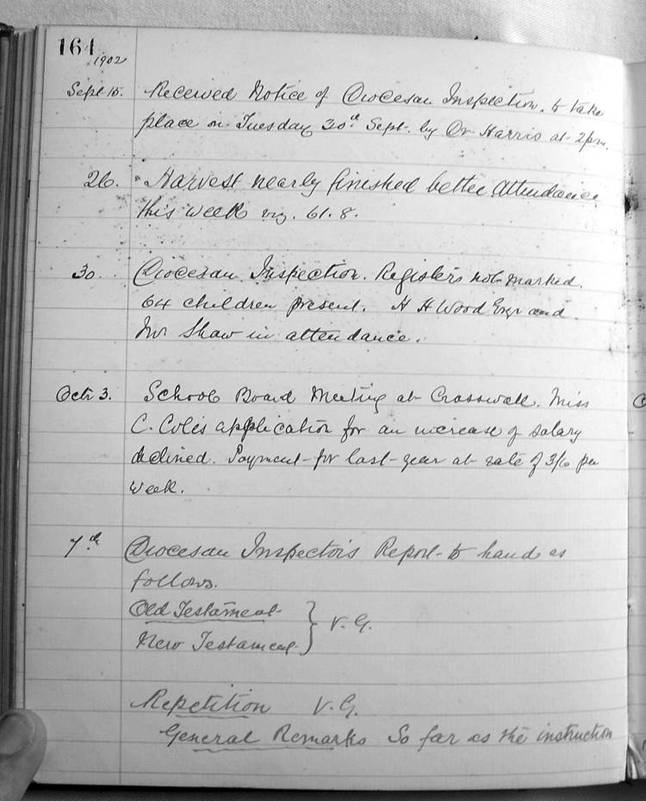 164
1902
Sept 15. Received Notice of Diocesan Inspection, to take
place on Tuesday 30th Sept. by Dr Harris at 2pm.
26. Harvest nearly finished better attendance
this week avg. 61.8.
30. Diocesan Inspection. Registers not marked.
64 children present. H H Wood Esqr and
Mr Shaw in attendance.
Octr 3. School Board Meeting at Crasswall. Miss
C. Coles application for an increase of salary
declined. Payment for last year at rate of 3/6 per
week.
7th Diocesan Inspectors Report to hand as
follows.
Old Testament
New Testament } V.G.
Repetition V.G.
General Remarks So far as the instruction